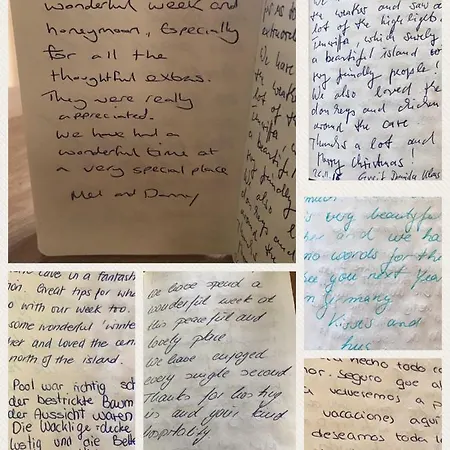 wonderful week and
honeymoon, Especially
for all the
thoughtful extras.
They were really
appreciated.
We have had a
wonderful time at
a very special place
Mel and Danny
the weeks and saw a
lot of the highlights
which surely
a beautiful island
very friendly people!
We also loved the
donkeys and chickens
around the
Thanks a lot and
Merry Christmas!
is very beautyfu
her and we ha
no words for the
see you next Year
in Germany
Kisses and
hug
cave in a fantasti
Great tips for wh
o with our week too.
some wonderful winte
her and loved the
north of the island.
Pool war richtig sch
der bestrickte Baum
der Aussicht waren
Die Wacklige
lustig und die
We have spend a
wonderful week at
this peaceful and
lovely place.
We have enjoyed
every single second
Thanks for
us and your kind
hospitality.
hecho todo co
Seguro que al
volveremos a p
vacaciones aquí
deseamos toda l